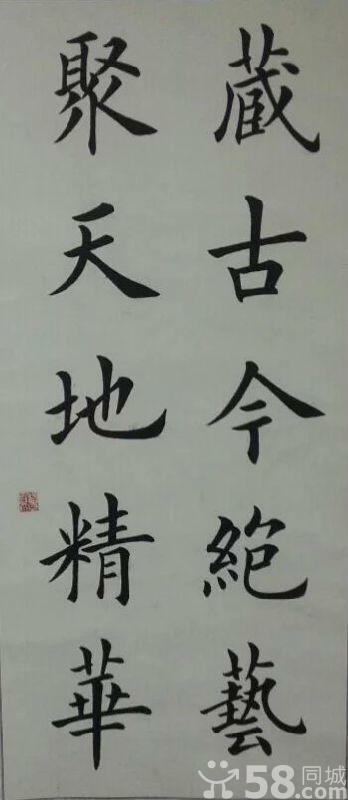 藏古今絕藝
聚天地精華
58同城